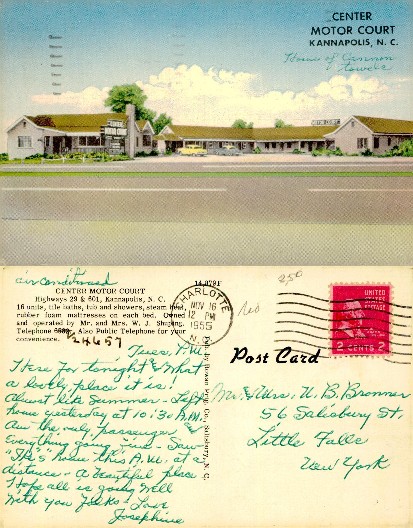 CENTER
MOTOR COURT
KANNAPOLIS, N. C.
Home of Cannon
towels
CENTER
MOTOR COURT
air conditioned
14,079F
CENTER MOTOR COURT
Highways 29 & 601, Kannapolis, N. C.
16 units, tile baths, tub and showers, steam heat,
rubber foam mattresses on each bed. Owned
and operated by Mr. and Mrs. W. J. Shuping.
Telephone Also Public Telephone for your
convenience.
24657
CHARLOTTE
NOV 16
12 PM
1955
N.C.
250
UNITED
STATES
POSTAGE
2 CENTS 2
Post Card
Tues. P.M.
Here for tonight & What
a lovely place it is!
Almost like Summer - Left
home yesterday at 10:30 A.M.
Am the only passenger &
Everything going fine - Saw
"Ike's" home this A.M. at a
distance - A beautiful place
Hope all is going well
with you folks - Love
Josephine
Mr. & Mrs. U. B. Bronner
56 Salisbury St.
Little Falls
New York